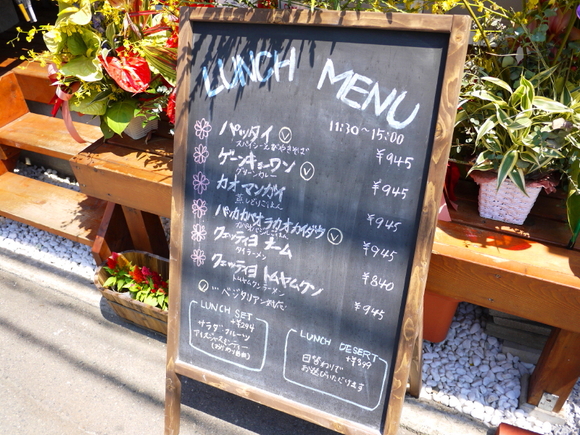 LUNCH MENU
11:30~15:00
パッタイ Ⓥ
¥945
ゲーンキョーワン Ⓥ
グリーンカレー
¥945
カオマンガイ
蒸しどりごはん
¥945
パッカパオラカオカイダウ Ⓥ
¥945
クェッティヨ ナーム
タイラーメン
¥840
クェッティヨ トムヤムクン
トムヤムクンラーメン
¥945
Ⓥ ... ベジタリアン
LUNCH SET
+¥294
サラダ フルーツ
LUNCH DESERT
+¥399
日替わりで
お選びいただけます